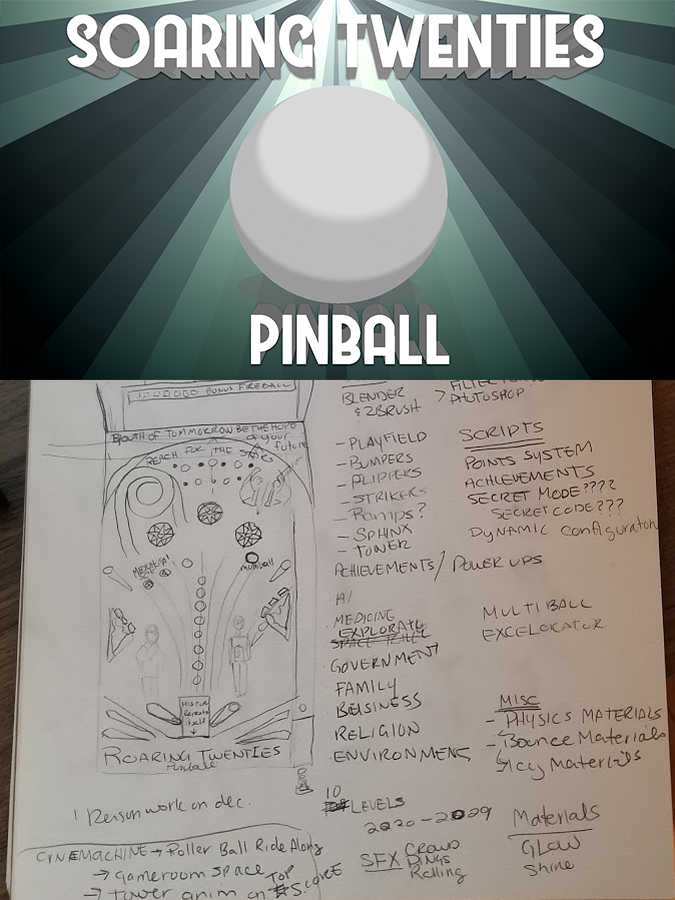 SOARING TWENTIES
PINBALL
BONUS FIREBALL
YOUTH OF TOMMORROW BE THE HOPE
of your
future
REACH FOR THE STARS
multiball
HISTORY
Repeats
itself
ROARING TWENTIES
Pinball
1 Person work on dec.
CINEMACHINE → Roller Ball Ride Along
→ gameroom space
→ tower anim on TOP SCORE
BLENDER
& ZBRUSH
PHOTOSHOP
- PLAYFIELD
- BUMPERS
- FLIPPERS
- STRIKERS
- Ramps?
- SPHINX
- TOWER
ACHIEVEMENTS / POWER UPS
AI
MEDICINE
GOVERNMENT
FAMILY
RELIGION
ENVIRONMENT
10
LEVELS
2020-2029
SFX
CROWD
DINGS
Rolling
SCRIPTS
POINTS SYSTEM
ACHIEVEMENTS
SECRET MODE????
SECRET CODE???
DYNAMIC configuration
MULTIBALL
EXCELORATOR
MISC
- PHYSICS MATERIALS
- Bounce Materials
Icy Materials
Materials
GLOW
Shine